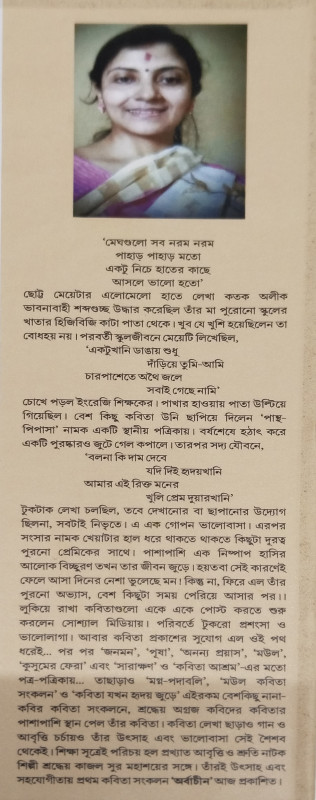 ‘মেঘগুলো সব নরম নরম
পাহাড় পাহাড় মতো
একটু নিচে হাতের কাছে
আসলে ভালো হতো’
ছোট্ট মেয়েটার এলোমেলো হাতে লেখা কতক অলীক
ভাবনাবাহী শব্দগুচ্ছ উদ্ধার করেছিল তাঁর মা পুরোনো স্কুলের
খাতার হিজিবিজি কাটা পাতা থেকে। খুব যে খুশি হয়েছিলেন তা
বোধহয় নয়। পরবর্তী স্কুলজীবনে মেয়েটি লিখেছিল,
‘একটুখানি ডাঙায় শুধু
দাঁড়িয়ে তুমি-আমি
চারপাশেতে অথৈ জলে
সবাই গেছে নামি’
চোখে পড়ল ইংরেজি শিক্ষকের। পাখার হাওয়ায় পাতা উল্টিয়ে
গিয়েছিল। বেশ কিছু কবিতা উনি ছাপিয়ে দিলেন ‘পান্থ-
পিপাসা’ নামক একটি স্থানীয় পত্রিকায়। বর্ষশেষে হঠাৎ করে
একটি পুরষ্কারও জুটে গেল কপালে। তারপর সদ্য যৌবনে,
‘বলনা কি দাম দেবে
যদি দিই হৃদয়খানি
আমার এই রিক্ত মনের
খুলি প্রেম দুয়ারখানি’
টুকটাক লেখা চলছিল, তবে দেখানোর বা ছাপানোর উদ্যোগ
ছিলনা, সবটাই নিভৃতে। এ এক গোপন ভালোবাসা। এরপর
সংসার নামক খেয়াটার হাল ধরে থাকতে থাকতে কিছুটা দূরত্ব
পুরনো প্রেমিকের সাথে। পাশাপাশি এক নিষ্পাপ হাসির
আলোক বিচ্ছুরণ তখন তার জীবন জুড়ে। হয়তবা সেই কারণেই
ফেলে আসা দিনের নেশা ভুলেছে মন। কিন্তু না, ফিরে এল তাঁর
পুরনো অভ্যাস, বেশ কিছুটা সময় পেরিয়ে আসার পর।।
লুকিয়ে রাখা কবিতাগুলো একে একে পোস্ট করতে শুরু
করলেন সোশ্যাল মিডিয়ায়। পরিবর্তে টুকরো প্রশংসা ও
ভালোলাগা। আবার কবিতা প্রকাশের সুযোগ এল ওই পথ
ধরেই... পর পর ‘জনমন’, ‘পূষা’, ‘অনন্য প্রয়াস’, ‘মউল’,
‘কুসুমের ফেরা’ এবং ‘সারাক্ষণ’ ও ‘কবিতা আশ্রম’-এর মতো
পত্র-পত্রিকায়... তাছাড়াও ‘মগ্ন-পদাবলি’, ‘মউল কবিতা
সংকলন’ ও ‘কবিতা যখন হৃদয় জুড়ে’ এইরকম বেশকিছু নানা-
কবির কবিতা সংকলনে, শ্রদ্ধেয় অগ্রজ কবিদের কবিতার
পাশাপাশি স্থান পেল তাঁর কবিতা। কবিতা লেখা ছাড়াও গান ও
আবৃত্তি চর্চায়ও তাঁর উৎসাহ এবং ভালোবাসা সেই শৈশব
থেকেই। শিক্ষা সুত্রেই পরিচয় হল প্রখ্যাত আবৃত্তি ও শ্রুতি নাটক
শিল্পী শ্রদ্ধেয় কাজল সুর মহাশয়ের সঙ্গে। তাঁরই উৎসাহ এবং
সহযোগীতায় প্রথম কবিতা সংকলন ‘অর্বাচীন’ আজ প্রকাশিত।